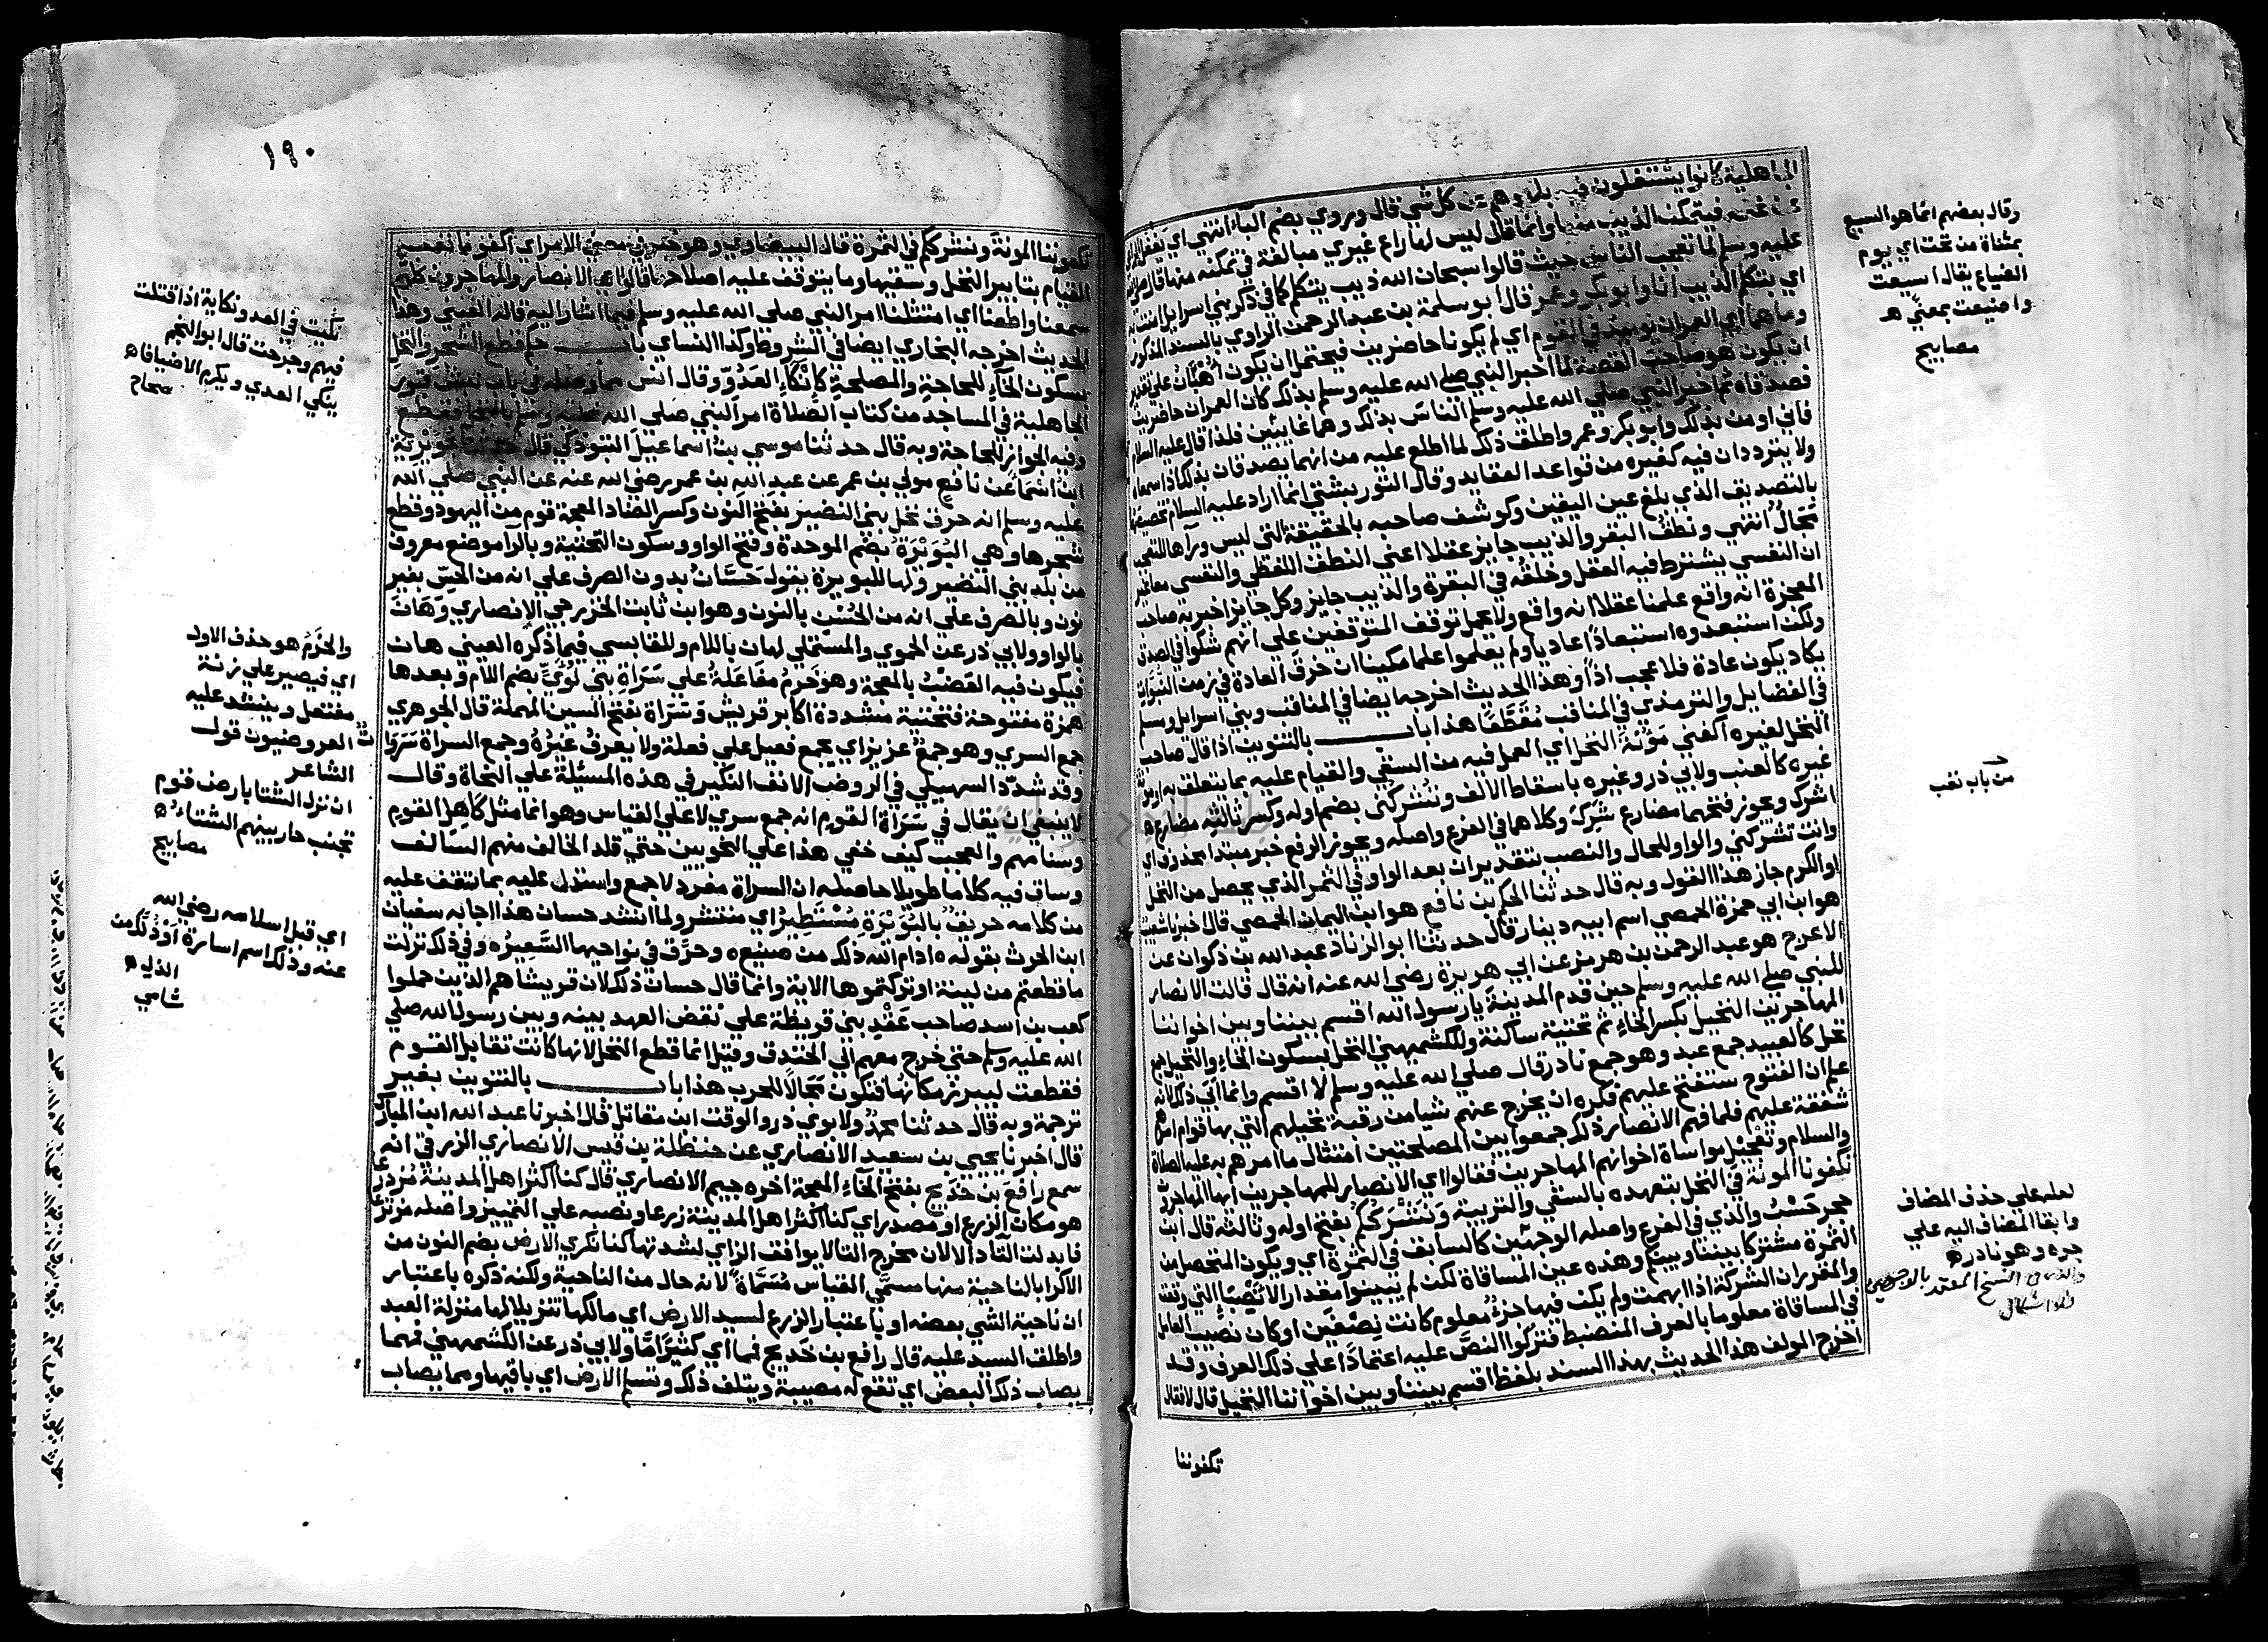 الجاهلية كانوا يشتغلون فيه بلهوهم عن كل شي قال وروي بضم الباء انتهي اي يغفل الراعي
عن غنمه فيتمكن الذيب منها وانما قال ليس لها راع غيري مبالغة في تمكنه منها قال صلي الله
عليه وسلم لما تعجب الناس حيث قالوا سبحان الله ذيب يتكلم كما في ذكر بني اسرايل امنت به
اي بتكلم الذيب انا وابو بكر وعمر قال ابو سلمة بن عبد الرحمن الراوي بالسند المذكور
وما هما اي العمران يوميذ في القوم اي لم يكونا حاضرين فيحتمل ان يكون اهتان علي تقدير
ان يكون هو صاحب القصة لما اخبر النبي صلي الله عليه وسلم بذلك كان العمران حاضرين
فصدقاه ثم اخبر النبي صلي الله عليه وسلم الناس بذلك وهما غايبين فلذا قال عليه السلام
فاني اومن بذلك وابو بكر وعمر واطلق ذلك لما اطلع عليه من انهما يصدقان بذلك اذا سمعاه
ولا يترددان فيه كغيره من قواعد العقايد وقال التوربشتي انما اراد عليه السلام تخصيصهما
بالتصديق الذي بلغ عين اليقين وكوشف صاحبه بالحقيقة التي ليس وراها للتعجب
مجال انتهي ونطق البقر والذيب جايز عقلا اعني النطق اللفظي والنفسي معا غير
ان النفسي يشترط فيه العقل وخلقه في البقرة والذيب جايز وكل جايز اخبر به صاحب
المعجزة انه واقع علمنا عقلا انه واقع ولا يحمل توقف المتوقفين علي انهم شكوا في الصدق
ولكن استبعدوه استبعادا عاديا ولم يعلموا علما مكينا ان خرق العادة في زمن النبوات
يكاد يكون عادة فلا عجب اذا وهذا الحديث اخرجه ايضا في المناقب وبني اسرايل ومسلم
في الفضايل والترمذي في المناقب مقطعا هذا باب بالتنوين اذا قال صاحب
النخل لغيره اكفني مونة النخل اي العمل فيه من السقي والقيام عليه بما يتعلق به او
غيره كالعنب ولابي ذر وغيره باسقاط الالف وتشركني بضم اوله وكسر ثالثه مضارع
اشرك ويجوز فتحهما مضارع شرك وكلاهما في الفرع واصله ويجوز الرفع خبر مبتدا محذوف اي
وانت تشركني والواو للحال والنصب بتقدير ان بعد الواو في الثمر الذي يحصل من النخل
او الكرم جاز هذا القول وبه قال حدثنا الحكم بن نافع هو ابو اليمان الحمصي قال اخبرنا شعيب
هو ابن ابي حمزة الحمصي اسم ابيه دينار قال حدثنا ابو الزناد عبد الله بن ذكوان عن
الاعرج هو عبد الرحمن بن هرمز عن ابي هريرة رضي الله عنه انه قال قالت الانصار
للنبي صلي الله عليه وسلم حين قدم المدينة يا رسول الله اقسم بيننا وبين اخواننا
المهاجرين النخيل بكسر الخاء ثم تحتية ساكنة وللكشميهني النخل بسكون الخاء والنخيل جمع
نخل كالعبيد جمع عبد وهو جمع نادر قال صلي الله عليه وسلم لا اقسم وانما ابي ذلك لانه
علم ان الفتوح ستفتح عليهم فكره ان يخرج عنهم شيا من رقبة نخيلهم التي بها قوام امرهم
شفقة عليهم فلما فهم الانصار ذلك جمعوا بين المصلحتين امتثال ما امرهم به عليه الصلاة
والسلام وتعجيل مواساة اخوانهم المهاجرين فقالوا اي الانصار للمهاجرين ايها المهاجرون
تكفونا المونة في النخل بتعهده بالسقي والتربية ونشرككم بفتح اوله وثالثه قال ابن
حجر حسب والذي في الفرع واصله الوجهين كالسابق في الثمرة اي ويكون المتحصل من
الثمرة مشتركا بيننا وبينكم وهذه عين المساقاة لكن لم يبينوا مقدار الانصباء التي وقعت
والمقرر ان الشركة اذا ابهمت ولم يكن فيها جزء معلوم كانت نصفين او كان نصيب العامل
في المساقاة معلوما بالعرف المنضبط فتركوا النص عليه اعتمادا علي ذلك العرف وقد
اخرج المولف هذا الحديث بهذا السند بلفظ اقسم بيننا وبين اخواننا النخيل قال لا فقال
تكفوننا
وقال بعضهم انما هو السبع
بمثناة من تحت اي يوم
الضياع يقال اسيعت
واضيعت بمعني هـ
مصابيح
من باب تعب
لعله علي حذف المضاف
وابقا المضاف اليه علي
جره وهو نادر هـ
١٩٠
تكفوننا المونة ونشرككم في الثمرة قال البيضاوي وهو خبر في معني الامر اي اكفونا تعب
القيام بتابير النخل وسقيها وما يتوقف عليه اصلاحها قالوا اي الانصار والمهاجرون كلهم
سمعنا واطعنا اي امتثلنا امر النبي صلي الله عليه وسلم فيما اشار اليه قاله العيني وهذا
الحديث اخرجه البخاري ايضا في الشروط وكذا النساي باب حكم قطع الشجر والنخل
بسكون الخاء للحاجة والمصلحة كانكاء العدو وقال انس مما وصله في باب نبش قبور
الجاهلية في المساجد من كتاب الصلاة امر النبي صلي الله عليه وسلم بالنخل فقطع
وفيه الجواز للحاجة وبه قال حدثنا موسي بن اسماعيل التبوذكي قال حدثنا جويرية
ابن اسماء عن نافع مولي بن عمر عن عبد الله بن عمر رضي الله عنه عن النبي صلي الله
عليه وسلم انه حرق نخل بني النضير بفتح النون وكسر الضاد المعجمة قوم من اليهود وقطع
شجرها وهي البويرة بضم الموحدة وفتح الواو وسكون التحتية وبالرا موضع معروف
من بلد بني النضير ولها للبويرة يقول حسان بدون الصرف علي انه من الحس بغير
نون وبالصرف علي انه من الحسن بالنون وهو ابن ثابت الخزرجي الانصاري وهان
بالواو ولابي ذر عن الحموي والمستملي لهان باللام وللقابسي فيما ذكره العيني هان
فيكون فيه العضب بالمعجمة وهو خرم مفاعلة علي سراة بني لوي بضم اللام وبعدها
همزة مفتوحة فتحتية مشددة اكابر قريش وسراة بفتح السين المهملة قال الجوهري
جمع السري وهو جمع عزيز اي يجمع فعيل علي فعلة ولا يعرف غيره وجمع السراة سروات
وقد شدد السهيلي في الروض الانف النكير في هذه المسئلة علي النحاة وقال
لا ينبغي ان يقال في سراة القوم انه جمع سري لا علي القياس وهو انما مثل كاهل القوم
وسنامهم والعجب كيف خفي هذا علي النحويين حتي قلد الخالف منهم السالف
وساق فيه كلاما طويلا حاصله ان السراة مفرد لا جمع واستدل عليه بما تقف عليه
من كلامه حريق بالبويرة مستطير اي منتشر ولما انشد حسان هذا اجابه سفيان
ابن الحرث بقوله ادام الله ذلك من صنيع وحرق في نواحيها السعير وفي ذلك نزلت
ما قطعتم من لينة او تركتموها الاية وانما قال حسان ذلك لان قريشا هم الذين حملوا
كعب بن اسد صاحب عقد بني قريظة علي نقض العهد بينه وبين رسول الله صلي
الله عليه وسلم حتي خرج معهم الي الخندق وقيل انما قطع النخل لانها كانت تقابل القوم
فقطعت ليبرز مكانها فتكون مجالا للحرب هذا باب بالتنوين بغير
ترجمة وبه قال حدثنا محمد ولابوي ذر والوقت ابن مقاتل قال اخبرنا عبد الله ابن المبارك
قال اخبرنا يحيي بن سعيد الانصاري عن حنظلة بن قيس الانصاري الزرقي انه
سمع رافع بن خديج بفتح الخاء المعجمة اخره جيم الانصاري قال كنا اكثر اهل المدينة مزدرعا
هو مكان الزرع او مصدر اي كنا اكثر اهل المدينة زرعا ونصبه علي التمييز واصله مزترعا
فابدلت التا دالا لان مخرج التا لا يوافق الزاي لشدتها كنا نكري الارض بضم النون من
الاكرا بالناحية منها مسمي القياس مسماة لانه حال من الناحية ولكنه ذكره باعتبار
ان ناحية الشي بعضه او باعتبار الزرع لسيد الارض اي مالكها تنزيلا لها منزلة العبد
واطلق السيد عليه قال رافع بن خديج فمما اي كثيرا ما ولابي ذر عن الكشميهني فمهما
يصاب ذلك البعض اي تقع له مصيبة ويتلف ذلك وتسلم الارض اي باقيها ومما يصاب
نكيت في العدو نكاية اذا قتلت
فيهم وجرحت قال ابو النجم
ينكي العدي ويكرم الاضيافا هـ
صحاح
والخرم هو حذف الاول
اي فيصير علي زنة
مفتعل وينشد عليه
العروضيون قول
الشاعر
ان نزل الشتا بارض قوم
تجنب جار بيتهم الشتاء هـ
مصابيح
اي قبل اسلامه رضي الله
عنه وذلك اسم اشارة او ذلك من
الذل هـ
شامي